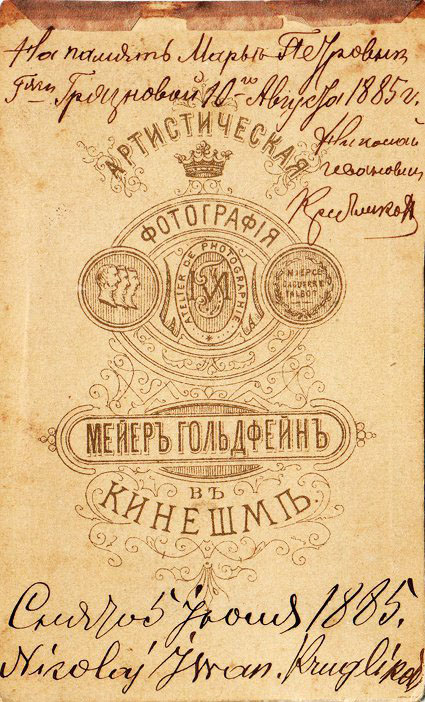 На память Марьи Петровны
Г-жи Грязновой 10го Августа 1885 г.
Николай
Иванович
Кругликов
АРТИСТИЧЕСКАЯ
ФОТОГРАФІЯ
ATELIER DE PHOTOGRAPHIE
NIEPCE
DAGUERRE
TALBOT
МЕЙЕРЪ ГОЛЬДФЕЙНЪ
ВЪ
КИНЕШМѢ.
5 Іюня 1885.
Nikolaj Iwan. Kruglikov